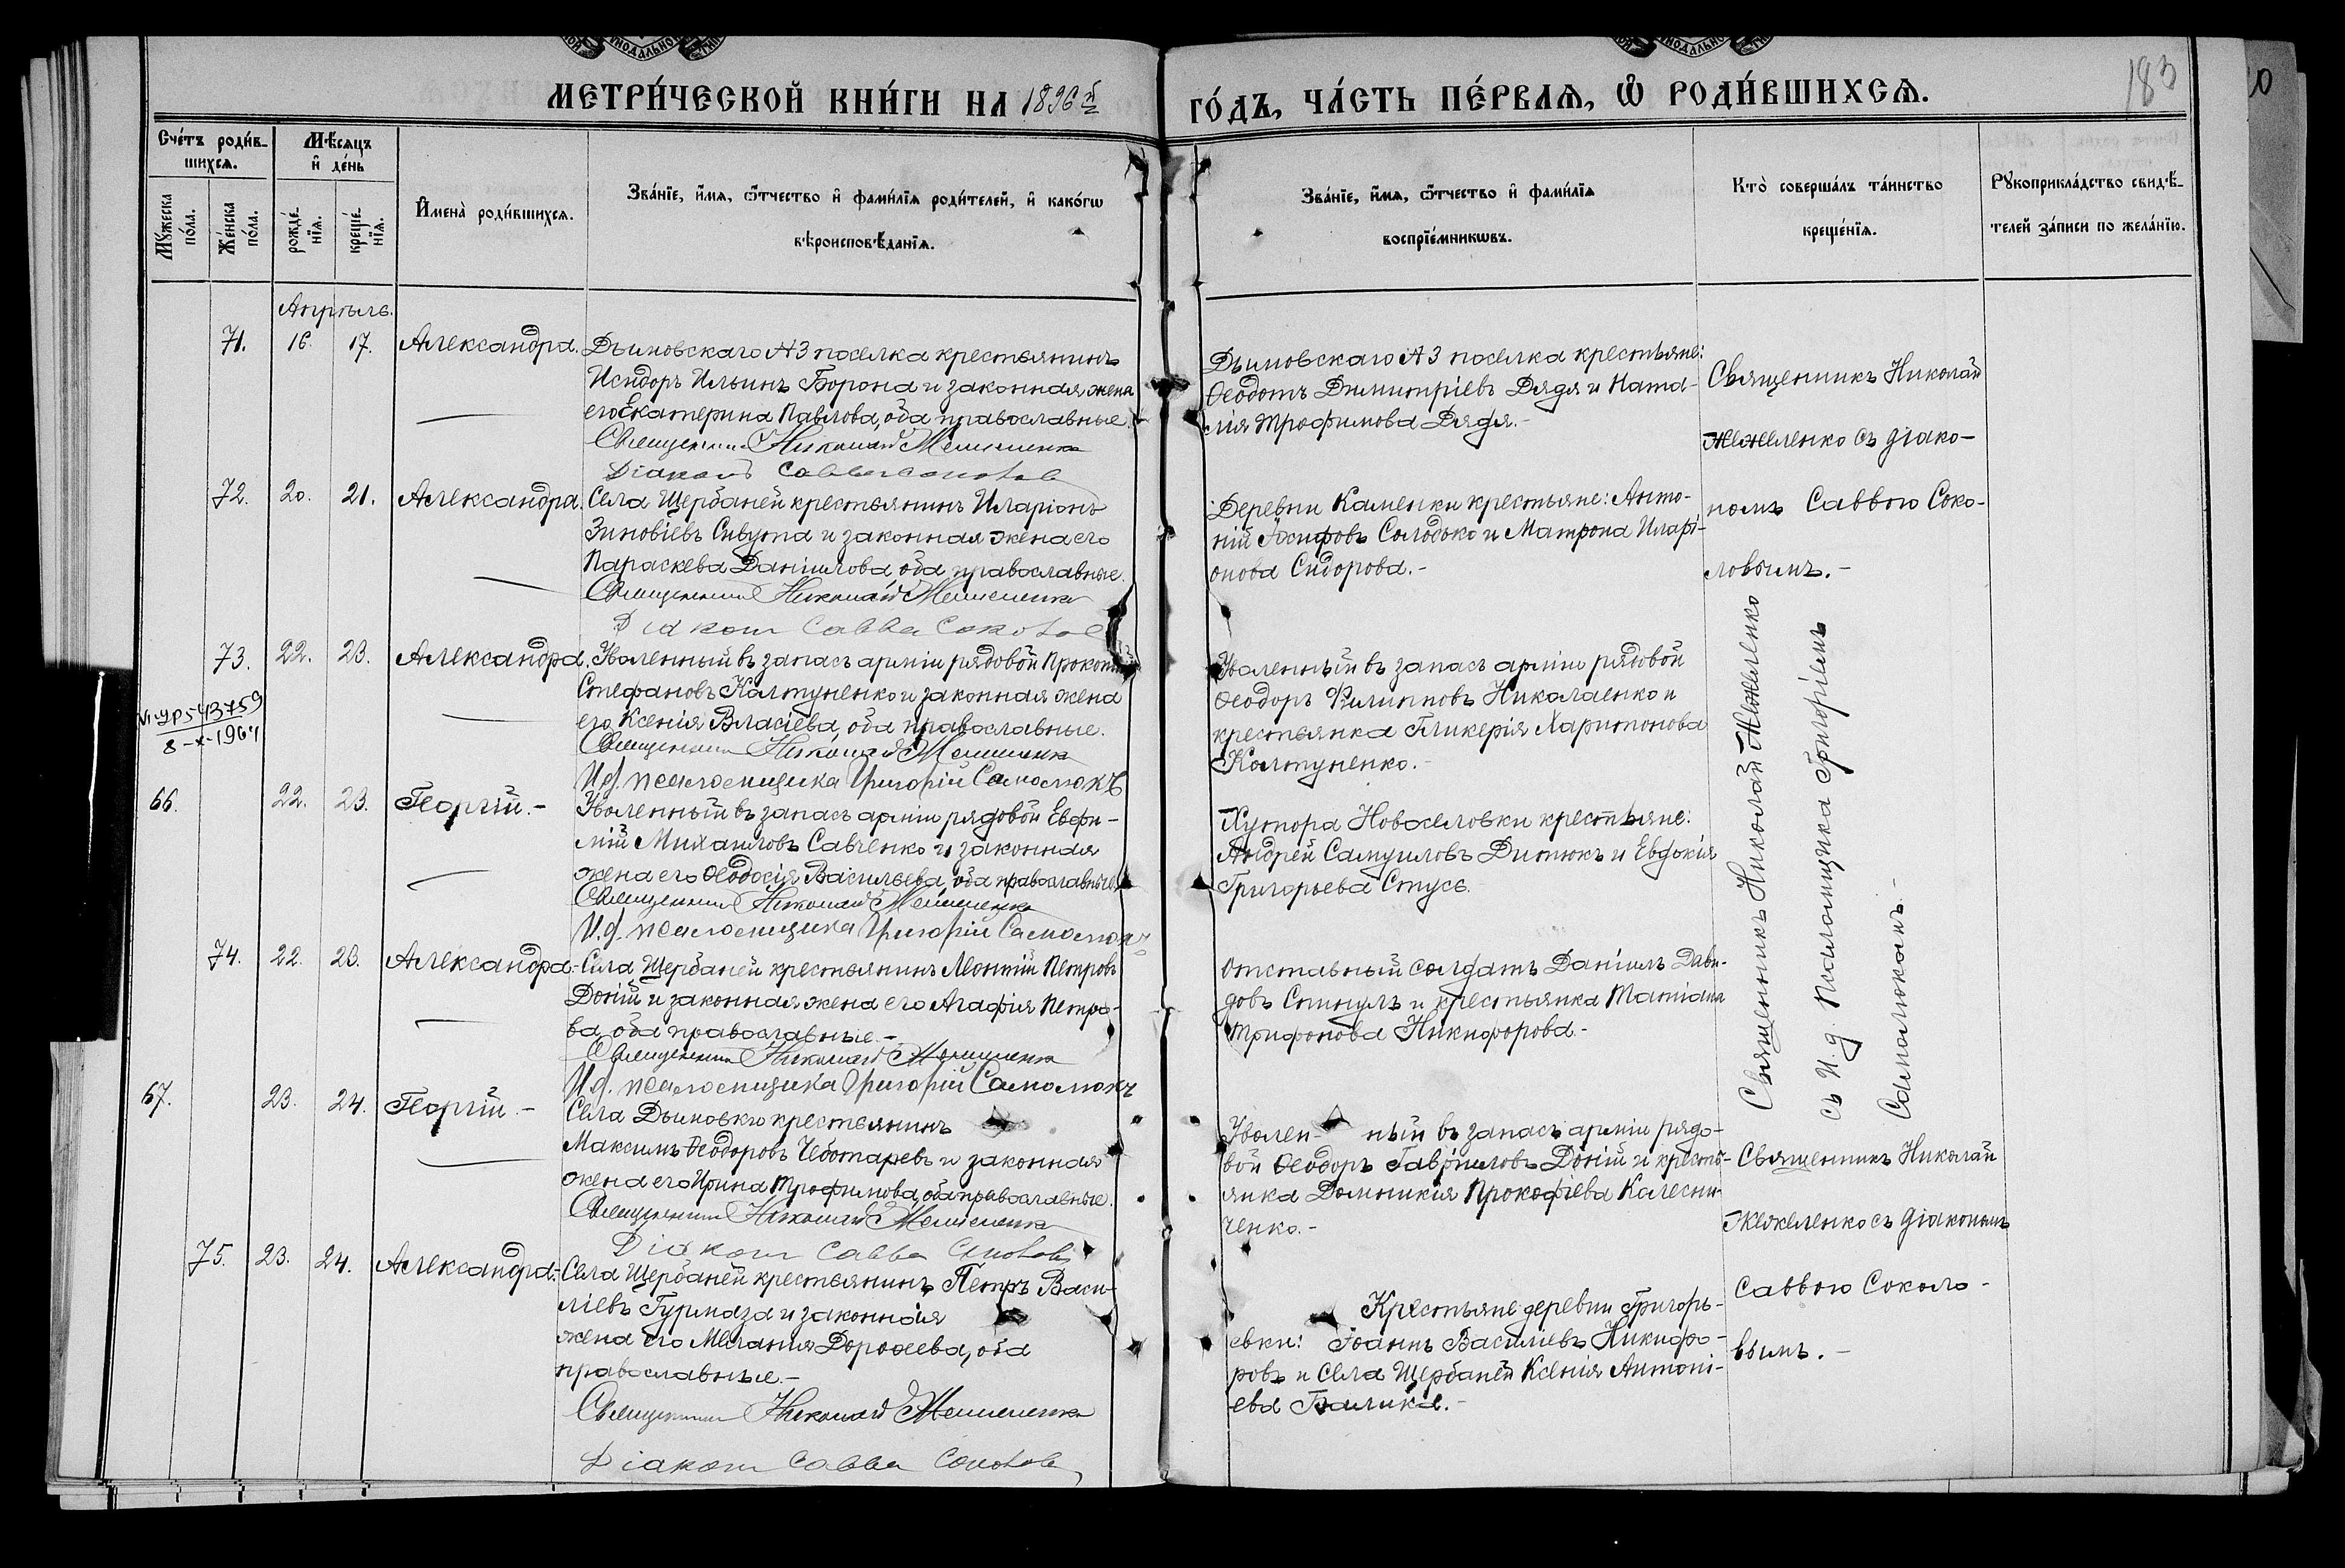 МЕТРИ́ЧЕСКОЙ КНИ́ГИ НА 1896й
ГО́ДЪ, ЧА́СТЬ ПЕ́РВАѦ, Ѽ РОДИ́ВШИХСѦ.
183
Сче́тъ роди́в-
шихсѧ.
Мꙋ́жеска
по́ла.
Же́нска
по́ла.
Мѣ́сѧцъ
и҆ де́нь
рожде́-
нїѧ.
креще́-
нїѧ.
И҆мена̀ роди́вшихсѧ.
Зва́нїе, и҆́мѧ, ѻ҆́тчество и҆ фами́лїѧ роди́телей, и҆ како́гѡ
вѣроисповѣ́данїѧ.
Зва́нїе, и҆́мѧ, ѻ҆́тчество и҆ фами́лїѧ
воспрїе́мникѡвъ.
Кто̀ соверша́лъ та́инство
креще́нїѧ.
Рꙋкоприкла́дство свидѣ́-
телей за́писи по жела́нїю.
Апрѣль.
71. 16. 17. Александра.
Дымовскаго №3 поселка крестьянинъ
Исидоръ Ильинъ Борона и законная жена
его Екатерина Павлова, оба православные.
Священникъ Николай Межеленко
Діаконъ Савва Соколовъ
Дымовскаго №3 поселка крестьяне:
Ѳеодотъ Димитріевъ Дядя и Ната-
лія Трофимова Дядя.-
Священникъ Николай
Межеленко съ діако-
72. 20. 21. Александра.
Села Щербаней крестьянинъ Иларіонъ
Зиновіевъ Сивута и законная жена его
Параскева Даніилова, оба православные.
Священникъ Николай Межеленко
Діаконъ Савва Соколовъ
Деревни Каменки крестьяне: Анто-
ній Іосифовъ Солодько и Матрона Иларі-
онова Сидорова.-
номъ Саввою Соко-
ловымъ.-
73. 22. 23. Александра.
Уволенный въ запасъ арміи рядовой Прокопій
Стефановъ Калтуненко и законная жена
его Ксенія Власіева, оба православные.
Священникъ Николай Межеленко
И.д. псаломщика Григорій Самолюкъ
VI-УР 543759
8-X-1964
Уволенный въ запасъ арміи рядовой
Ѳеодоръ Филипповъ Николаенко и
крестьянка Гликерія Харитонова
Калтуненко.-
Священникъ Николай Межеленко
съ И.д. псаломщика Григоріемъ
Самолюкомъ.-
66. 22. 23. Георгій.-
Уволенный въ запасъ арміи рядовой Евфи-
мій Михаиловъ Савченко и законная
жена его Ѳеодосія Васильева, оба православные.
Священникъ Николай Межеленко
И.д. псаломщика Григорій Самолюкъ
Хутора Новоселовки крестьяне:
Андрей Самуиловъ Дитюкъ и Евдокія
Григорьева Стусь.
74. 22. 23. Александра.-
Села Щербаней крестьянинъ Леонтій Петровъ
Доній и законная жена его Агафія Петро-
ва, оба православные.-
Священникъ Николай Межеленко
И.д. псаломщика Григорій Самолюкъ
Отставный солдатъ Даніилъ Дави-
довъ Стингулъ и крестьянка Татіана
Трифонова Никифорова.-
67. 23. 24. Георгій.-
Села Дымовки крестьянинъ
Максимъ Ѳеодоровъ Чеботаревъ и законная
жена его Ирина Трофимова, оба православные.
Священникъ Николай Межеленко
Діаконъ Савва Соколовъ
Уволен- ный въ запасъ арміи рядо-
вой Ѳеодоръ Гавріиловъ Доній и кресть-
янка Домникія Прокофіева Калесни-
ченко.-
Священникъ Николай
Межеленко съ діакономъ
75. 23. 24. Александра.-
Села Щербаней крестьянинъ Петръ Васи-
ліевъ Гурмаза и законная
жена его Меланія Дороѳеева, оба
православные.-
Священникъ Николай Межеленко
Діаконъ Савва Соколовъ
Крестьяне деревни Григорь-
евки: Іоаннъ Василіевъ Никифо-
ровъ и села Щербаней Ксенія Антоні-
ева Балика.-
Саввою Соколо-
вымъ.-